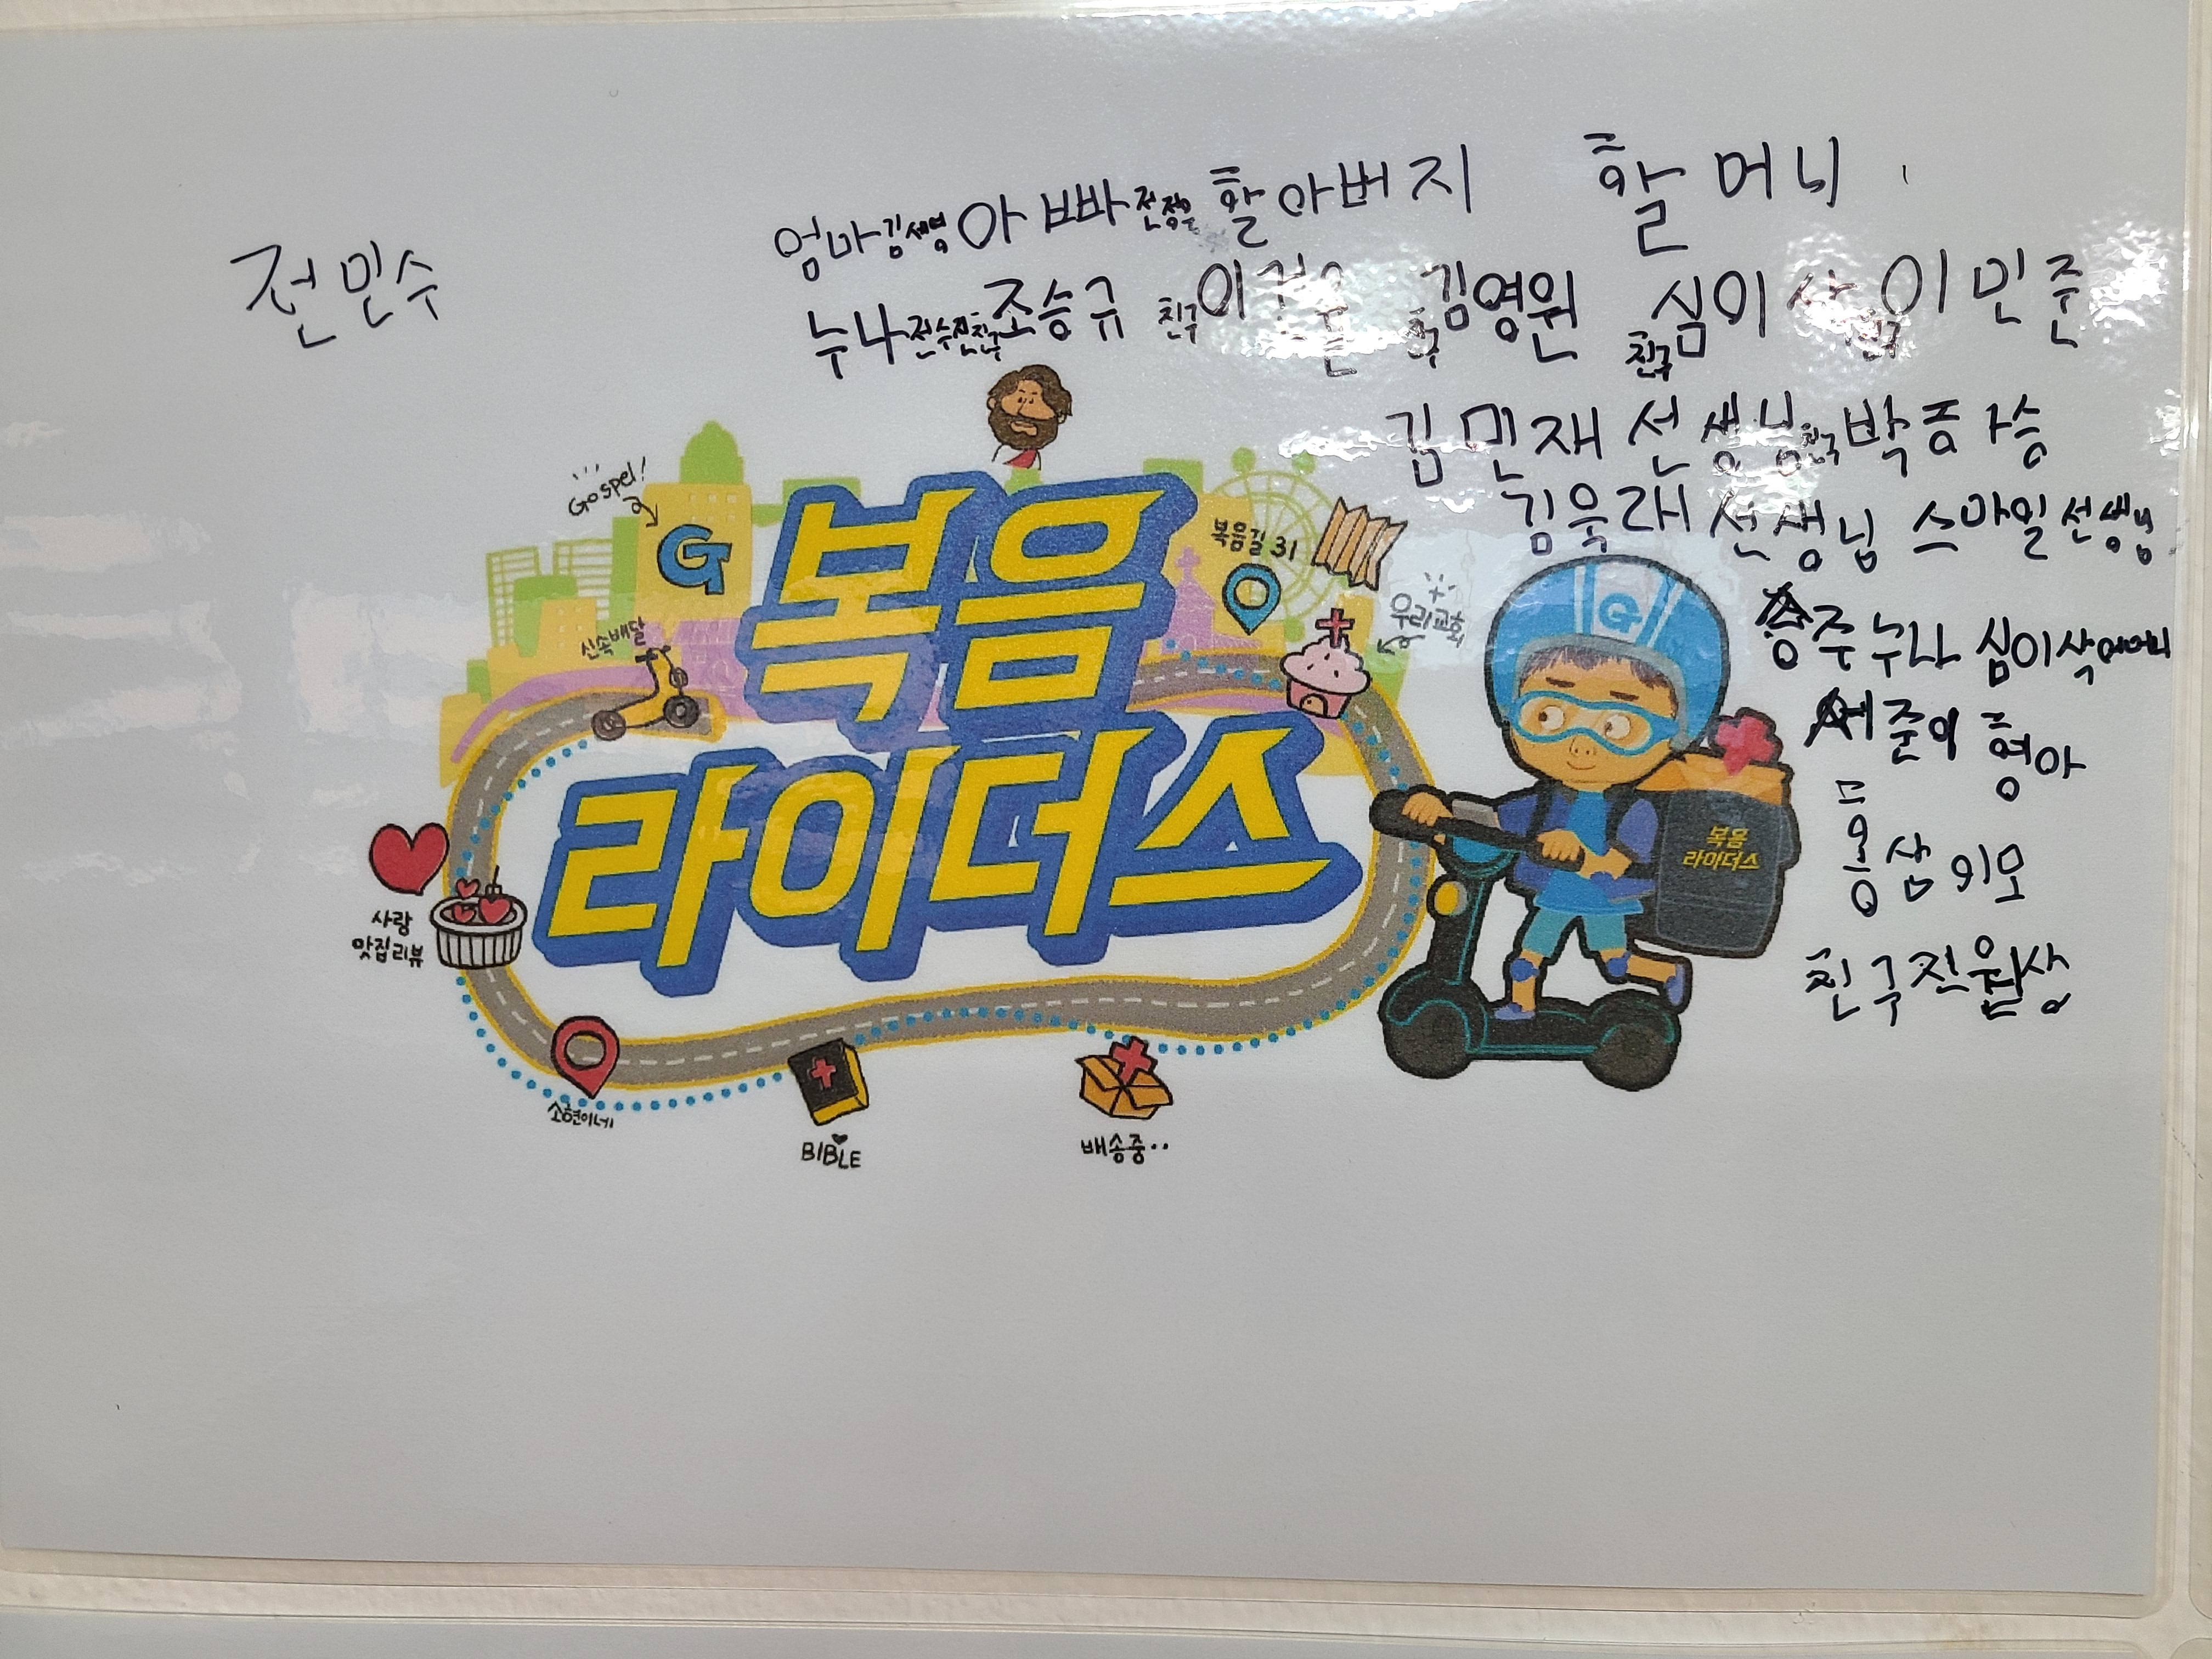 전민수
엄마 김세영 아빠 할아버지 할머니
누나 전수진 친구 조승규 친구 김영원 친구 심이삭 이민준
김민재 선생님 친구 박
김욱래 선생님 스마일 선생님
승주누나 심이삭 어머니
세준이 형아
홍삼이모
친구 전
Gospel!
G
복음길 31
우리교회
신속배달
복음
라이더스
G
복음
라이더스
사랑
맛집리뷰
소현이네
BIBLE
배송중..